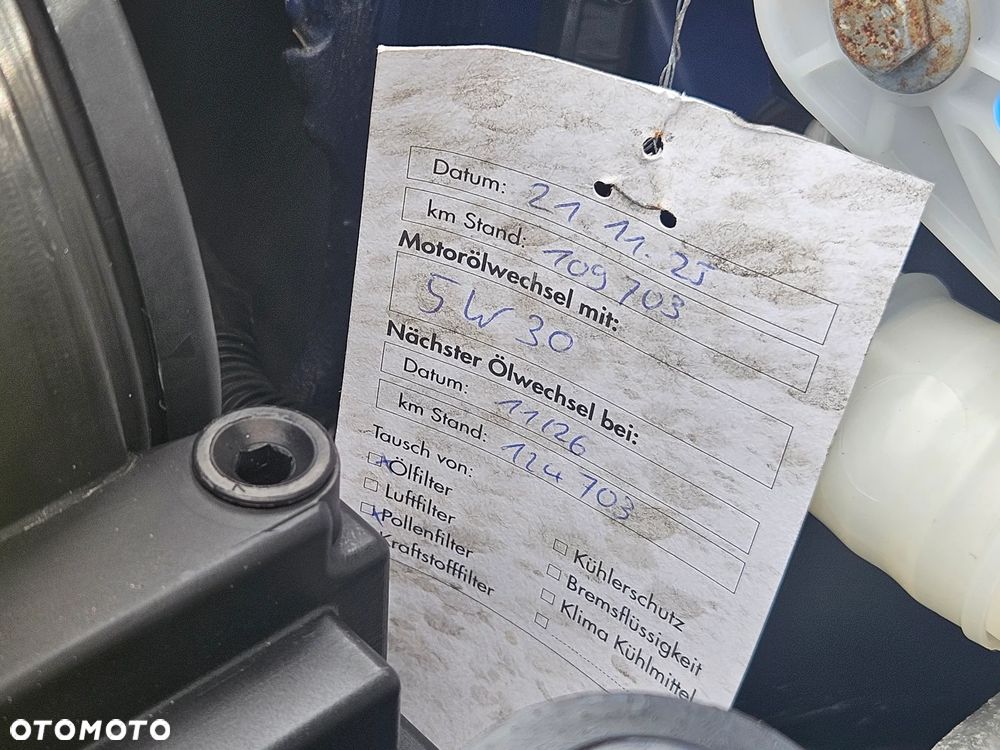 Datum: 21 11. 25
km Stand: 109 703
Motorölwechsel mit:
5W30
Nächster Ölwechsel bei:
Datum: 11/26
km Stand: 124 703
Tausch von:
Ölfilter
Luftfilter
Pollenfilter
Kraftstofffilter
Kühlerschutz
Bremsflüssigkeit
Klima Kühlmittel
OTOMOTO